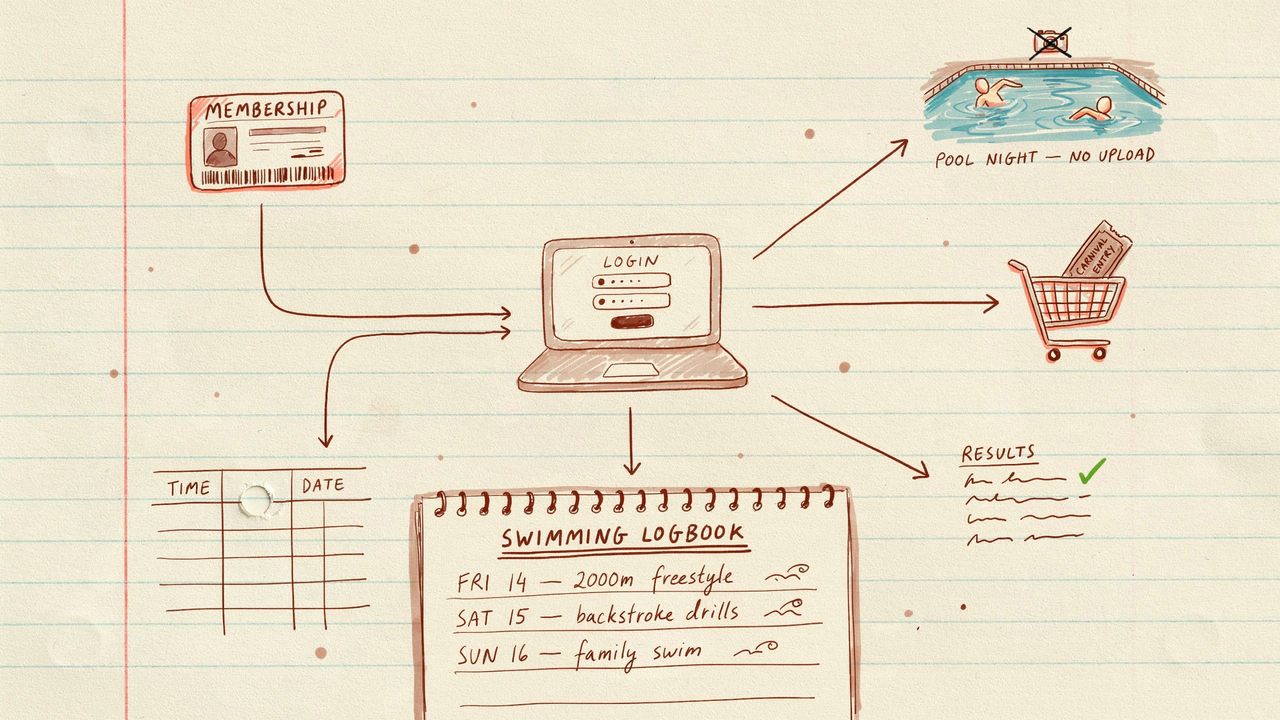 MEMBERSHIP
POOL NIGHT — NO UPLOAD
LOGIN
CARNIVAL
ENTRY
TIME DATE
RESULTS
SWIMMING LOGBOOK
FRI 14 — 2000m freestyle
SAT 15 — backstroke drills
SUN 16 — family swim